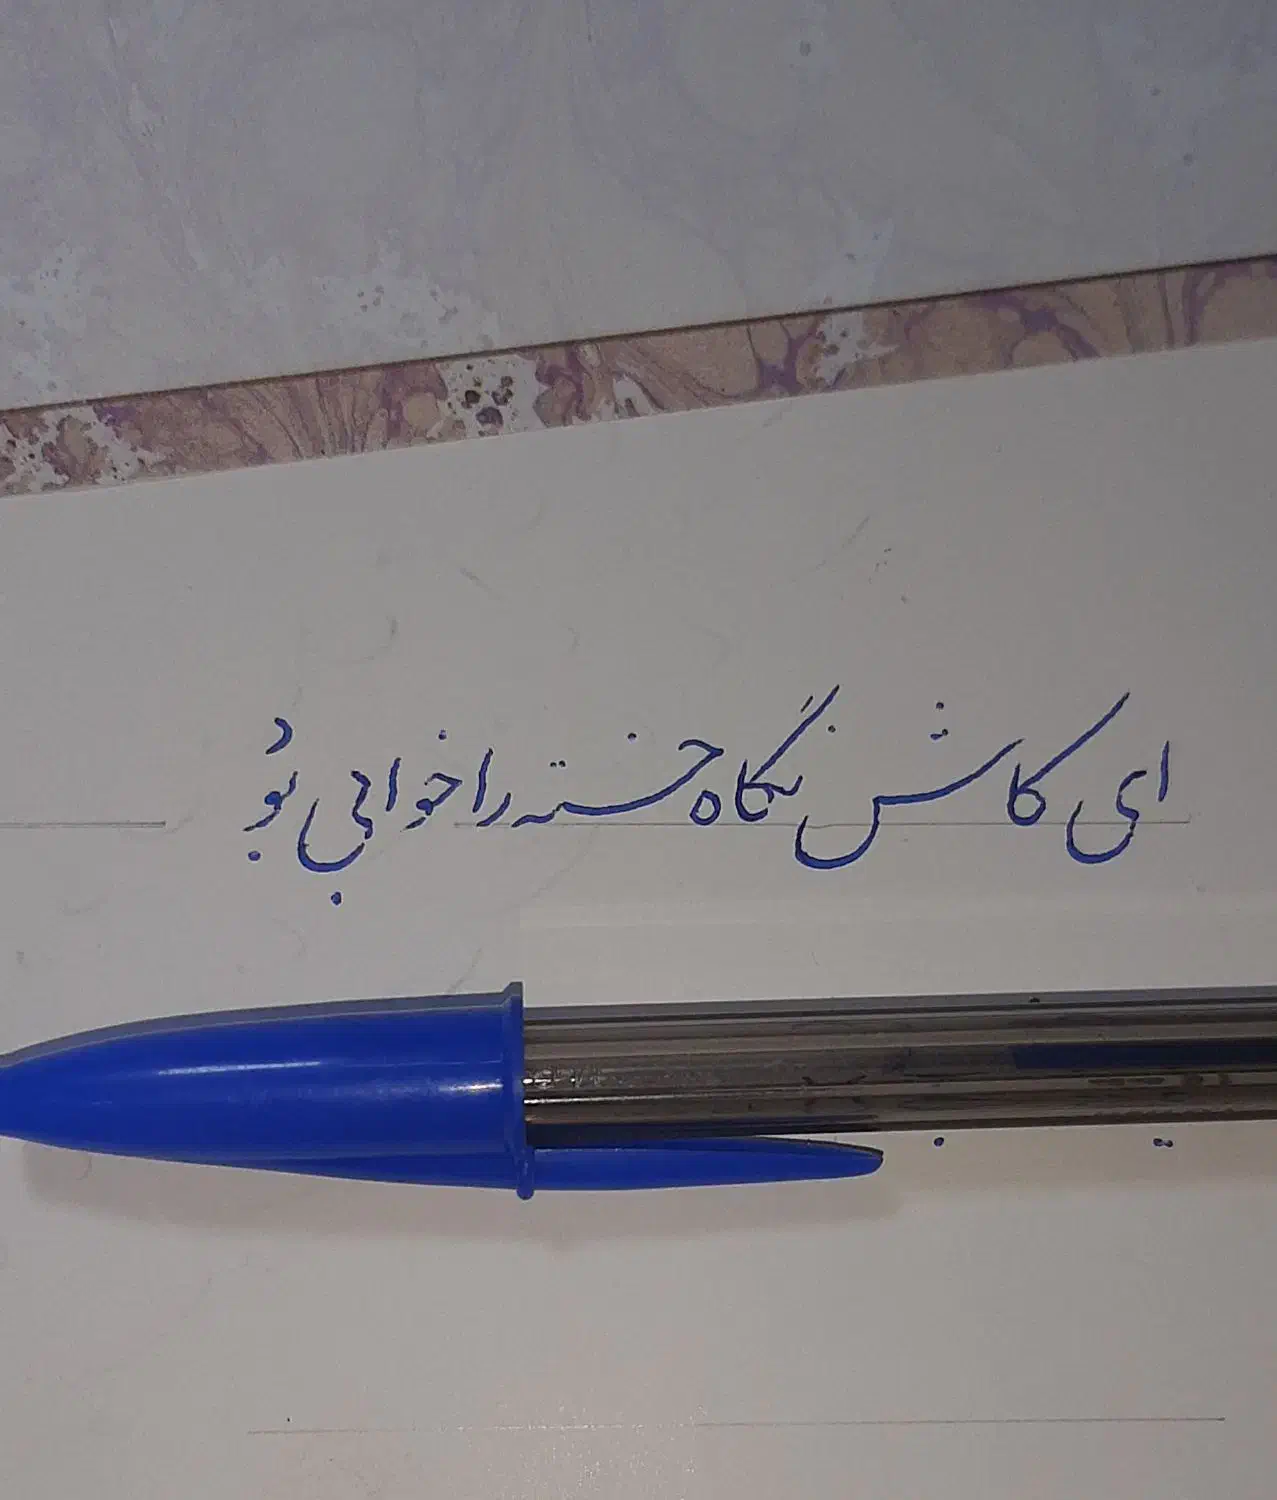 ای کاش نگاه خسته را خوابی بود